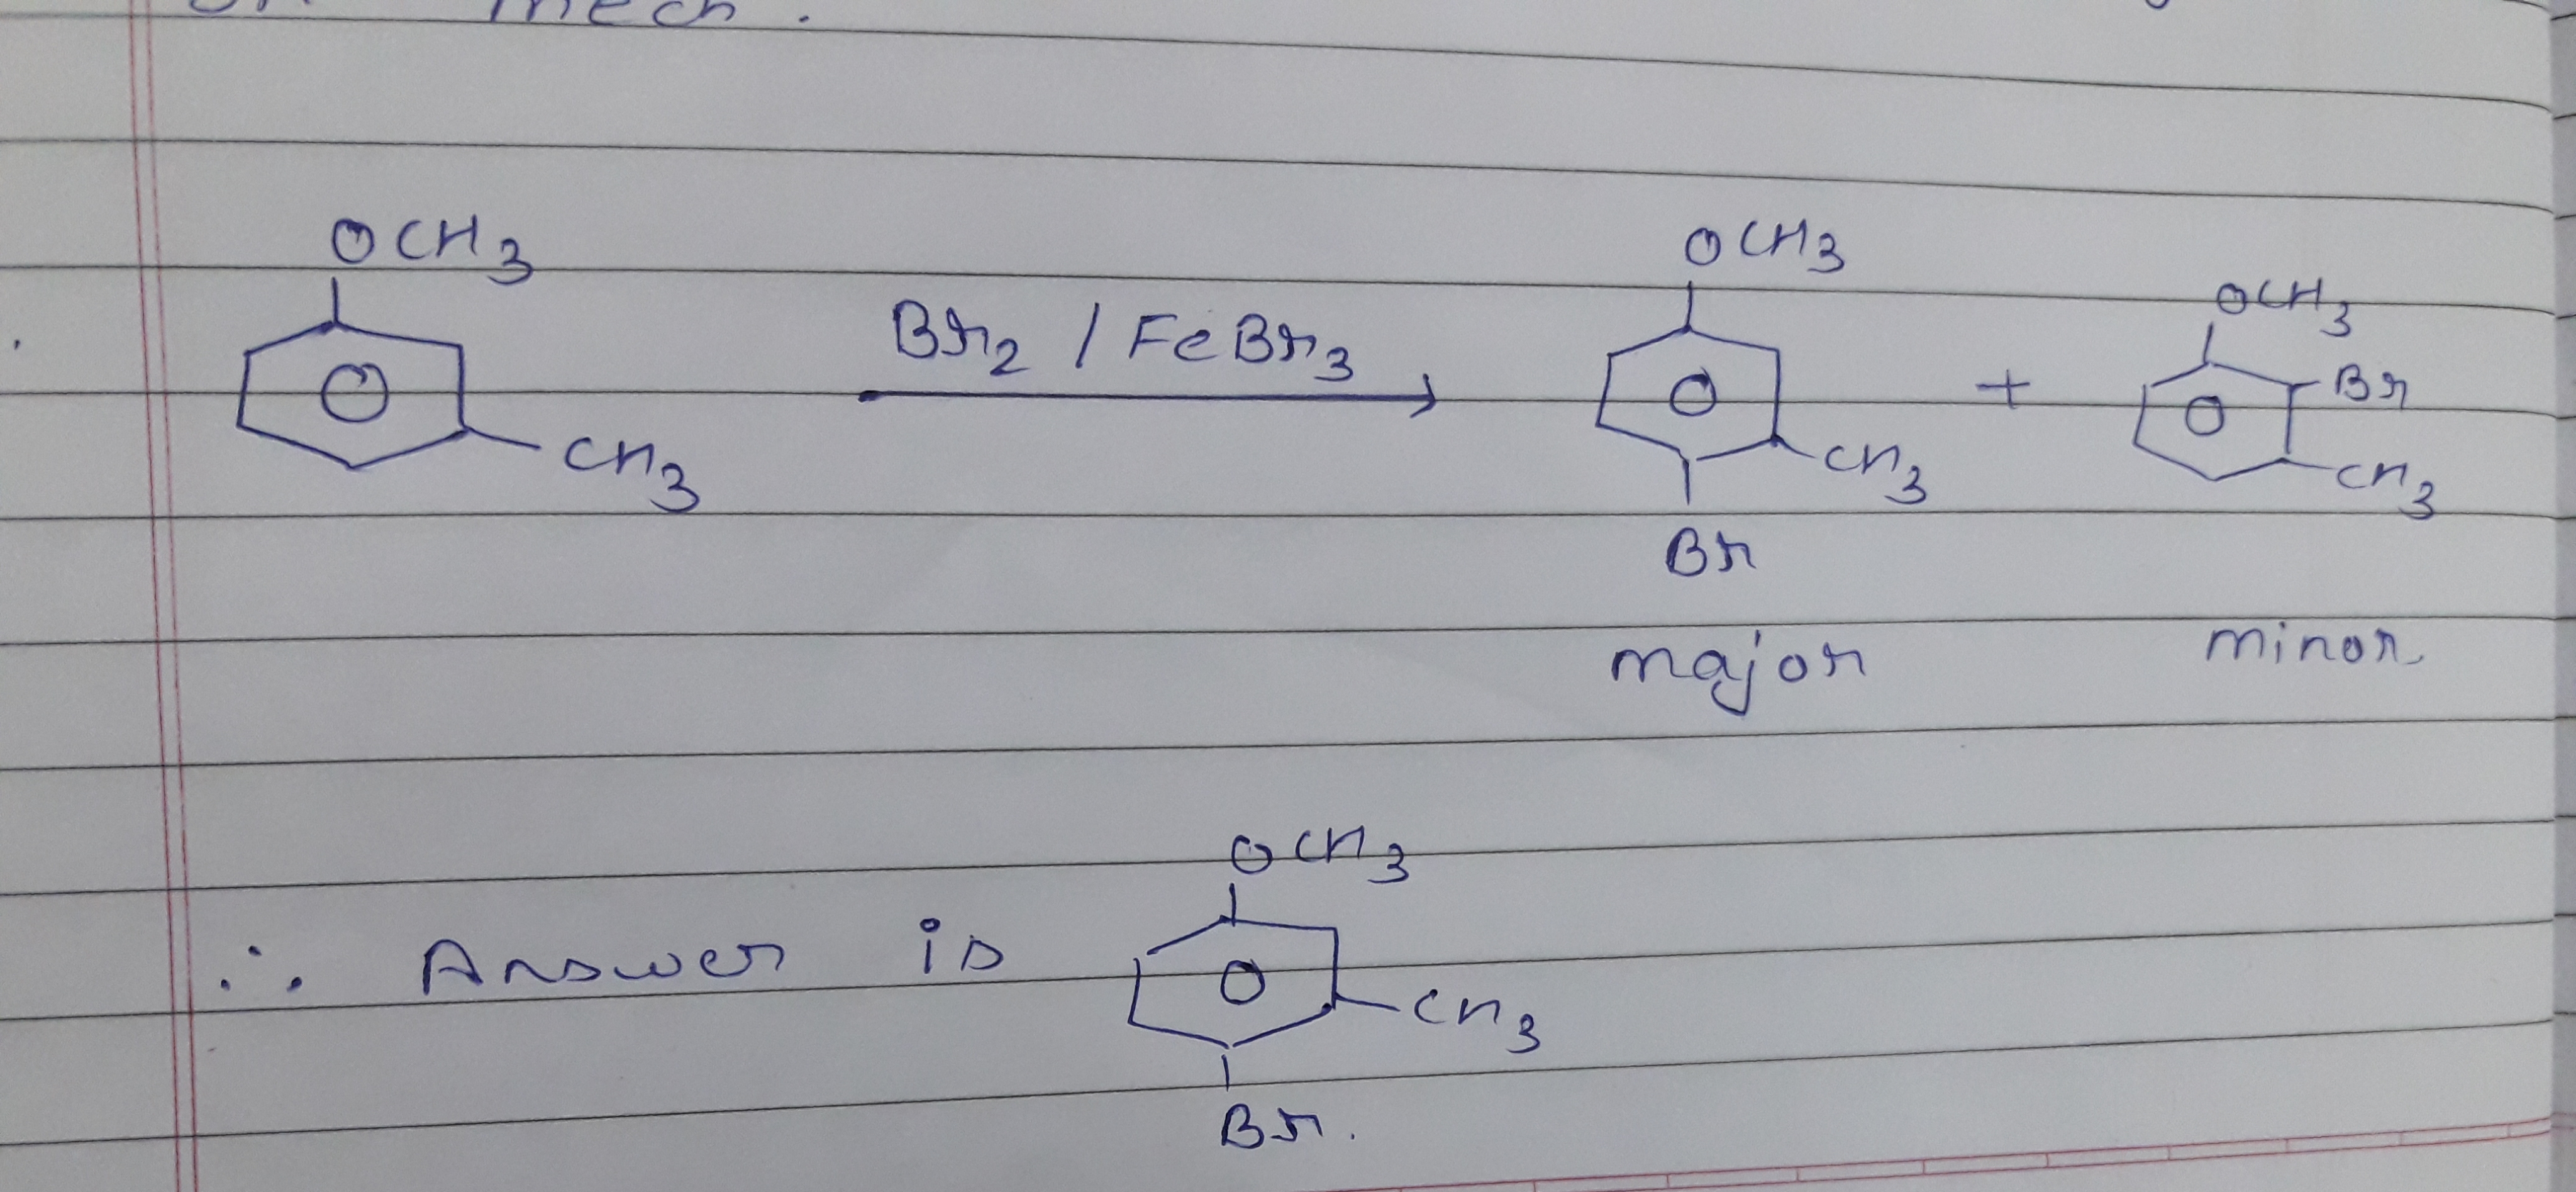 mech.
OCH3 OCH3
Br2 / FeBr3 OCH3
+ Br
CH3 CH3 CH3
Br
major minor.
OCH3
∴ Answer is
CH3
Br.